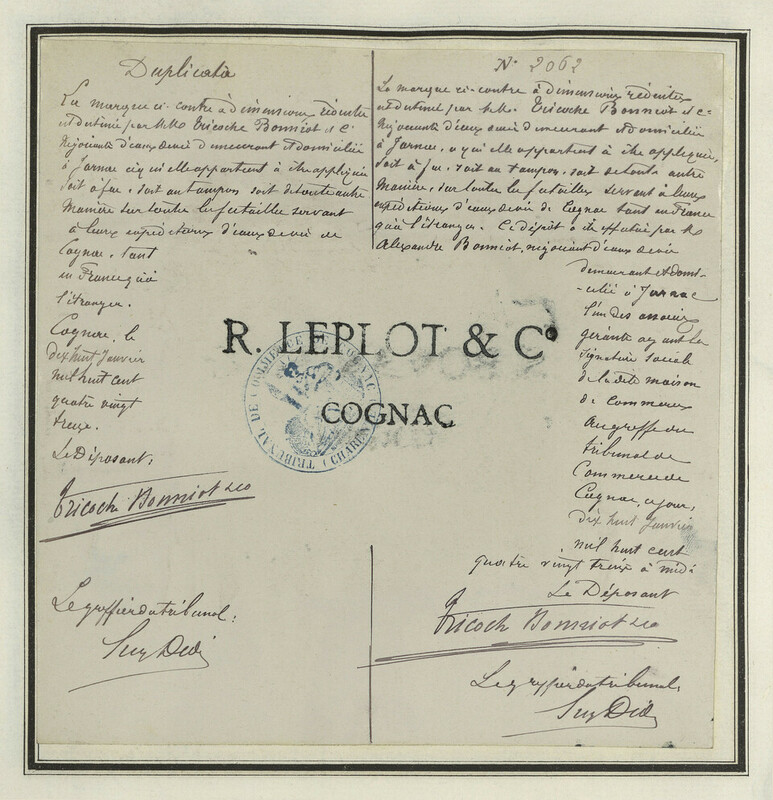 Duplicata
La marque ci-contre à dimensions réduites
est destiné par MM. Tricoche Bonniot et Cie
Négociants d'eaux de vie demeurant et domiciliés
à Jarnac et qu'elle appartient à être appliquée
soit à feu, soit au tampon, soit de toute autre
Manière sur toute les futailles servant
à leurs expéditions d'eaux de vie de
Cognac, tant
en France qu'à
l'étranger.
Cognac, le
dix huit Janvier
mil huit cent
quatre vingt
treize.
Le Déposant,
Tricoche Bonniot & Co
Le greffier du tribunal:
N° 2062
La marque ci-contre à dimensions réduites
est destiné par MM. Tricoche Bonniot et Cie
Négociants d'eaux de vie demeurant et domiciliés
à Jarnac, à qui elle appartient à être appliquée,
soit à feu, soit au tampon, soit de toute autre
Manière, sur toute les futailles servant à leurs
expéditions d'eaux de vie de Cognac tant en France
qu'à l'étranger. Ce dépôt a été effectué par M.
Alexandre Bonniot, négociant d'eaux de vie
demeurant et domi-
-cilié à Jarnac
l'un des associés
gérants ayant la
signature sociale
de la dite maison
de commerce
au greffe du
tribunal de
Commerce de
Cognac, ce jour,
dix huit Janvier
mil huit cent
quatre vingt treize à midi
Le Déposant
Tricoche Bonniot & Co
Le greffier du tribunal,
R. LEPLOT & Co
COGNAC
TRIBUNAL DE COMMERCE DE COGNAC